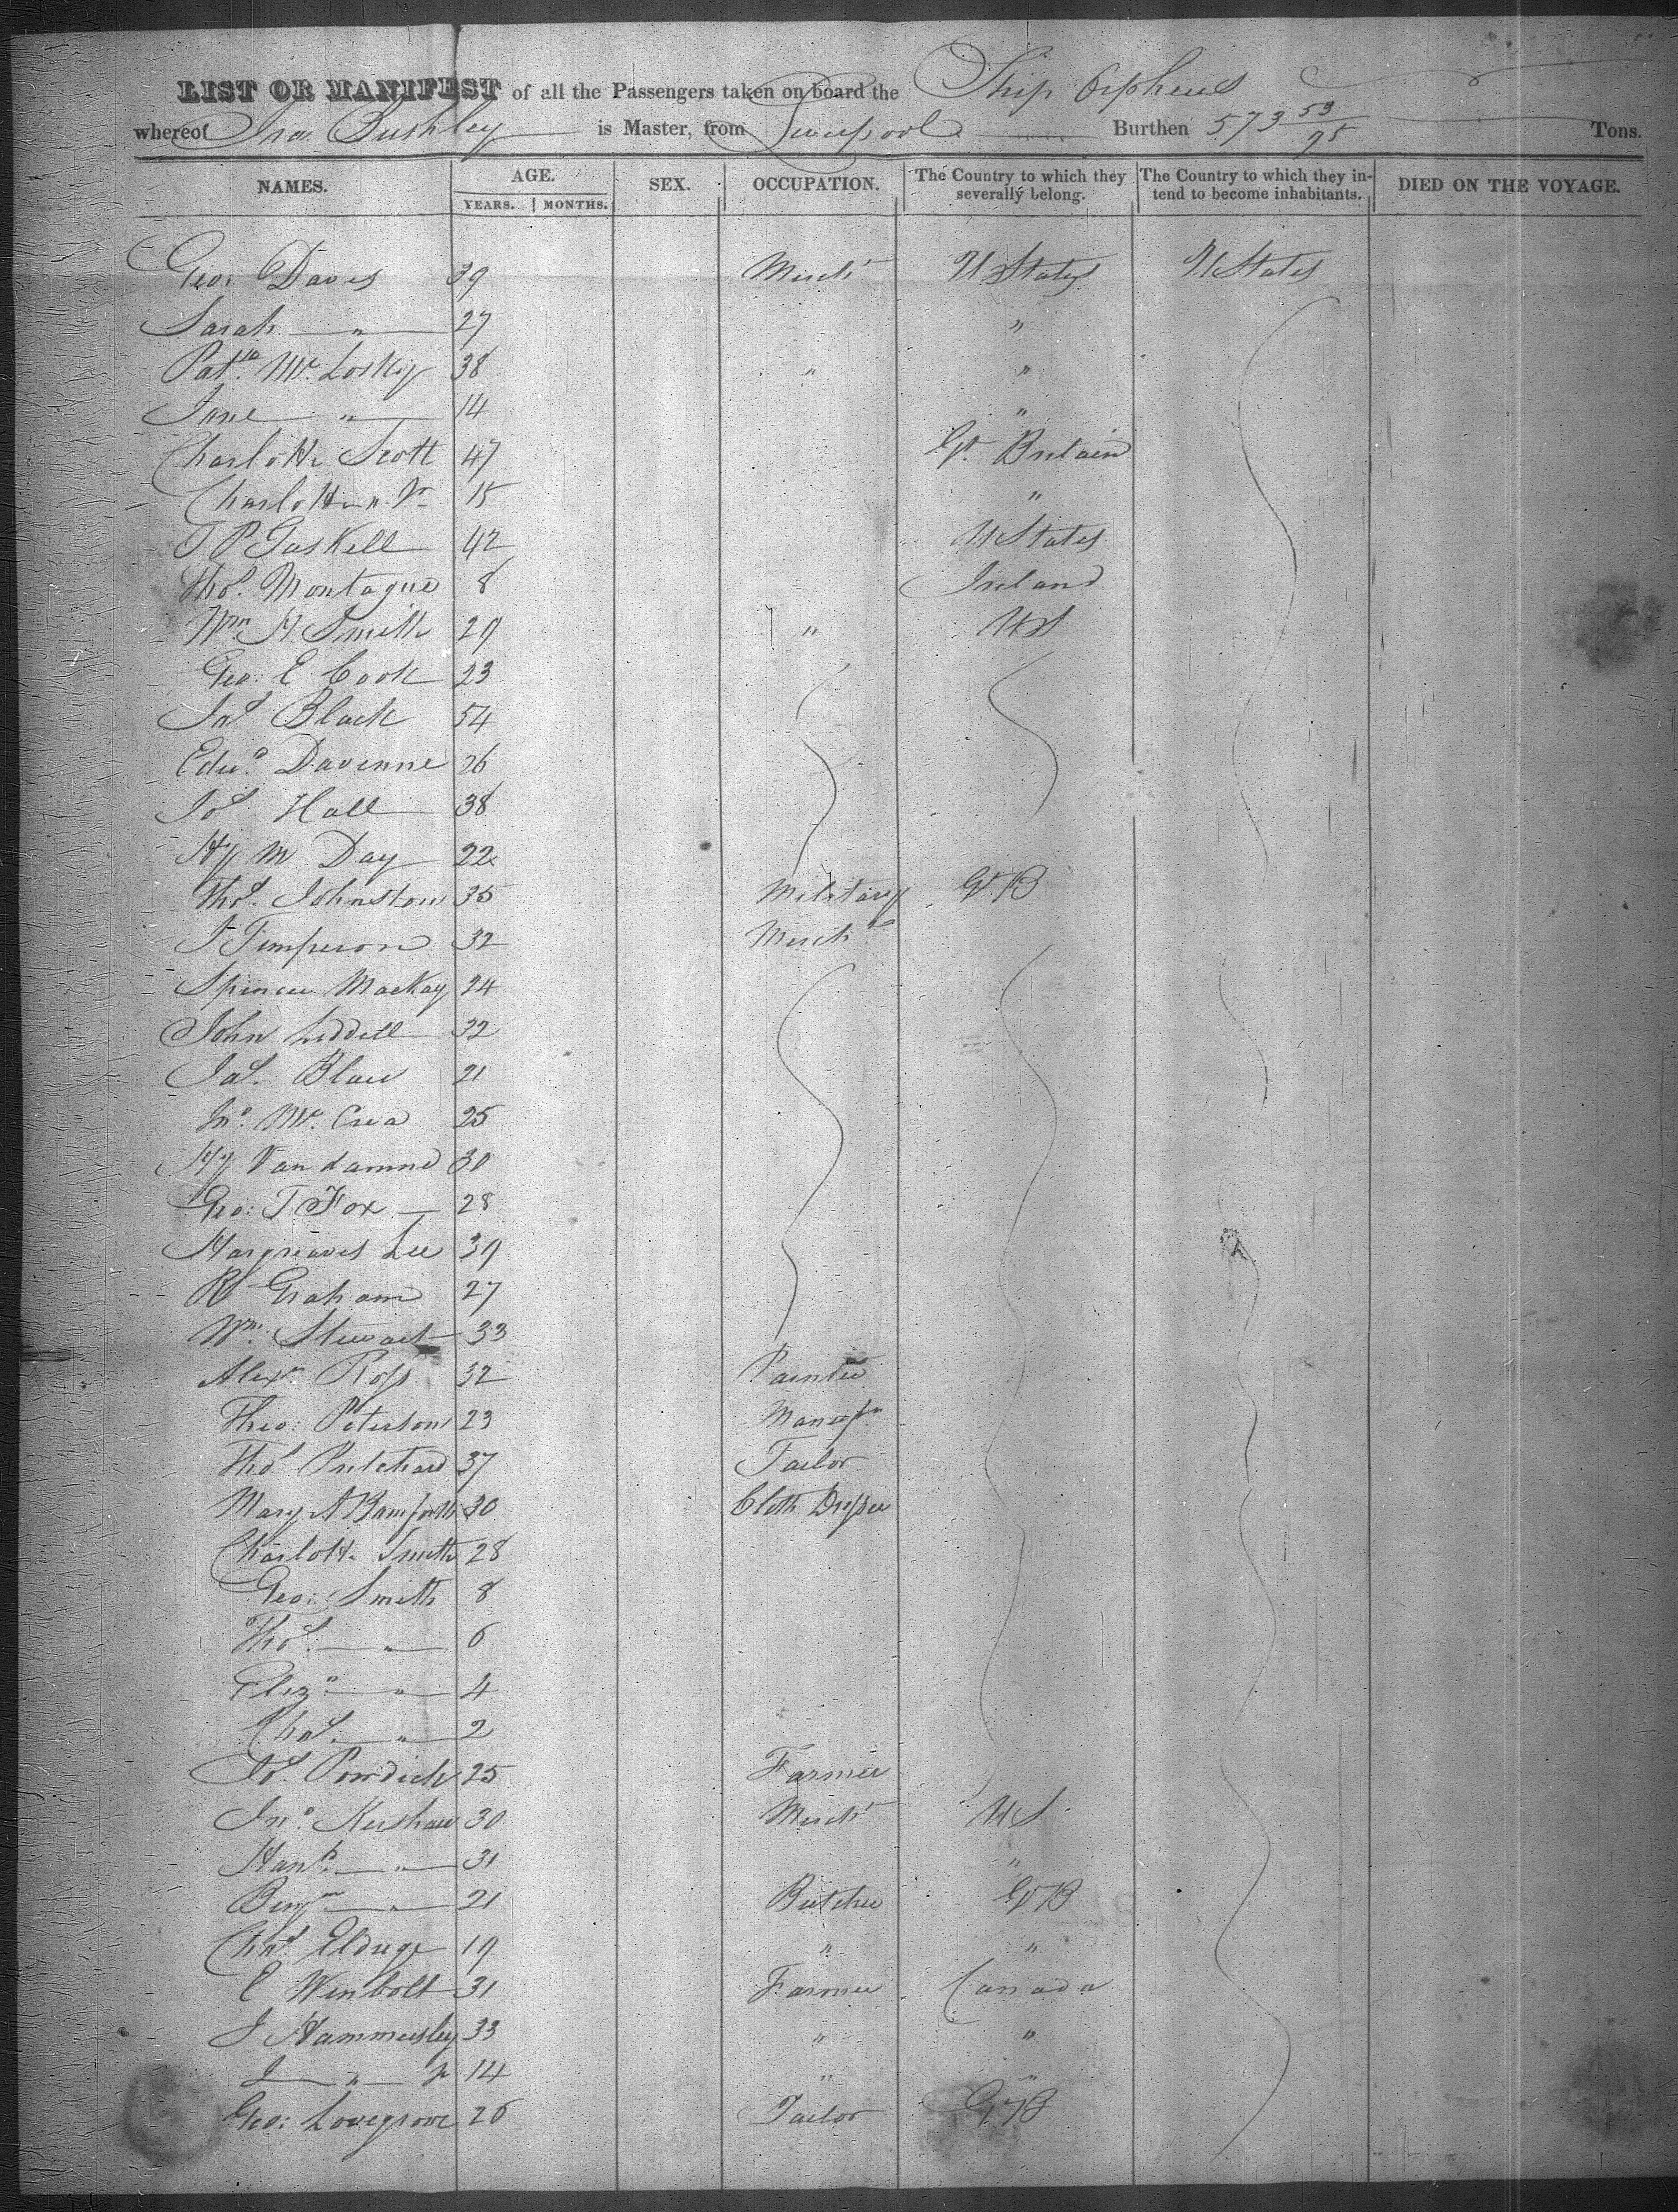 LIST OR MANIFEST of all the Passengers taken on board the Ship Orpheus
whereof Ira Bushley is Master, from Liverpool Burthen 573 53/95 Tons.
NAMES. AGE. SEX. OCCUPATION. The Country to which they severally belong. The Country to which they intend to become inhabitants. DIED ON THE VOYAGE.
YEARS. MONTHS.
Geo: Davis 39 Mercht U States U States
Sarah " 27 "
Patk. Mc. Loskey 38 " "
Jane " 14 "
Charlotte Scott 47 Gt. Britain
Charlotte " Jr 15 "
T P Gaskell 42 U States
Thos. Montague 8 Ireland
Wm H Smith 29 " US
Geo: E Cook 23
Jas Black 54
Edwd. Davenne 26
Jos Hall 38
Hy M Day 22
Thos. Johnston 35 Military Gt. B
J Timperon 32 Mercht
Spencer Mackay 24
John Liddell 32
Jas. Blair 21
Jno. Mc. Crea 25
Hy Vandamme 30
Geo: T Fox 28
Hargreaves Lee 39
R Graham 27
Wm. Stewart 33
Alexr. Ross 32 Painter
Theo: Peterson 23
Thos Pritchard 37 Tailor
Mary A Bamforth 30 Cloth Dresser
Charlotte Smith 28
Geo: Smith 8
Thos. " 6
Elizh " 4
Chas. " 2
Jos. Powdich 25 Farmer
Jno. Kershaw 30 Mercht US
Hanh. " 31 "
Benjn " 21 Butcher Gt B
19 " "
E Wimbolt 31 Farmer Canada
J Hammersley 33 " "
J " Jr 14 " "
Geo: Lovegrove 26 Tailor Gt B